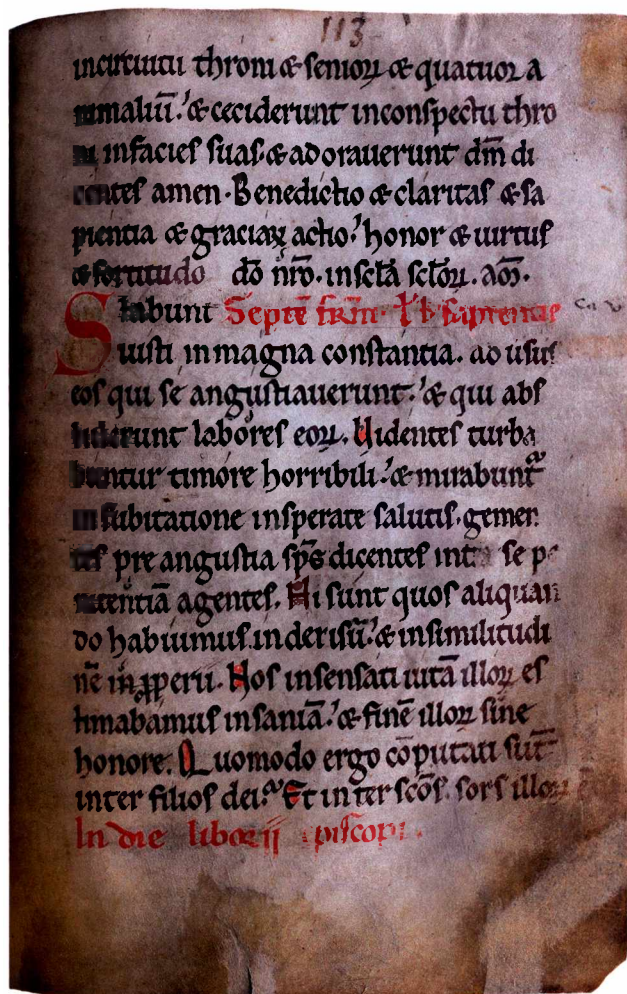 113
incircuitu throni & senioꝝ & quatuor a
nimaliū. & ceciderunt inconspectu thro
ni infacies suas. & adorauerunt dm̄ di
centes amen. Benedictio & claritas & sa
pientia & graciaꝝ actio. honor & uirtus
& fortitudo dō nr̄o. in sclā sclōꝝ. am̄.
Stabunt Septē frm̄. lib sapientie
iusti in magna constantia. aduersus
eos qui se angustiauerunt. & qui abs
tulerunt labores eoꝝ. Uidentes turba
buntur timore horribili. & mirabunt᷑
in subitatione insperate salutis. gemen
tes pre angustia sp̄s dicentes int se pe
nitentiā agentes. Hi sunt quos aliquan
do habuimus in derisū. & in similitudi
nē inꝓperii. Nos insensati uitā illoꝝ es
timabamus insaniā. & finē illoꝝ sine
honore. Quomodo ergo cōputati sūt
inter filios dei. Et inter sc̄os. sors illoꝝ
In die liborii episcopi.